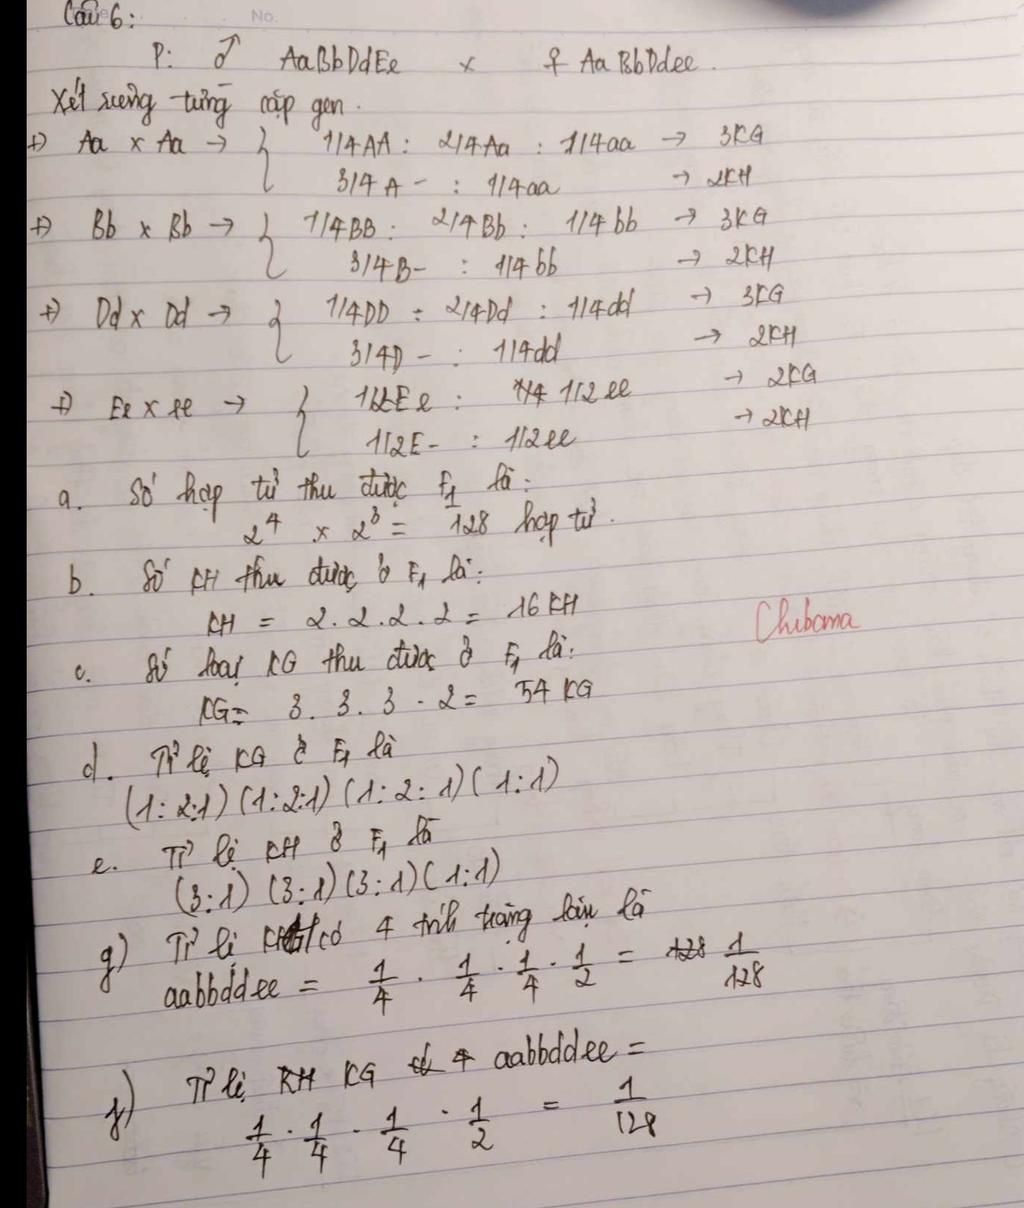 Câu 6:
No.
P: ♂ AaBbDdEe x ♀ AaBbDdee.
Xét riêng từng cặp gen.
+) Aa x Aa → { 1/4AA : 2/4Aa : 1/4aa → 3KG
3/4 A- : 1/4aa → 2KH
+) Bb x Bb → { 1/4BB : 2/4Bb : 1/4bb → 3KG
3/4B- : 1/4bb → 2KH
+) Dd x Dd → { 1/4DD : 2/4Dd : 1/4dd → 3KG
3/4D- : 1/4dd → 2KH
+) Ee x ee → { 1/2Ee : 1/2ee → 2KG
1/2E- : 1/2ee → 2KH
a. Số hợp tử thu được F1 là:
2^4 x 2^3 = 128 hợp tử.
b. Số KH thu được ở F1 là:
KH = 2.2.2.2 = 16 KH
Chibama
c. Số loại KG thu được ở F1 là:
KG = 3.3.3.2 = 54 KG
d. Tỉ lệ KG ở F1 là
(1:2:1)(1:2:1)(1:2:1)(1:1)
e. Tỉ lệ KH ở F1 là
(3:1)(3:1)(3:1)(1:1)
g) Tỉ lệ KH có 4 tính trạng lặn là
aabbddee = 1/4 . 1/4 . 1/4 . 1/2 = 1/128
f) Tỉ lệ KG aabbddee =
1/4 . 1/4 . 1/4 . 1/2 = 1/128